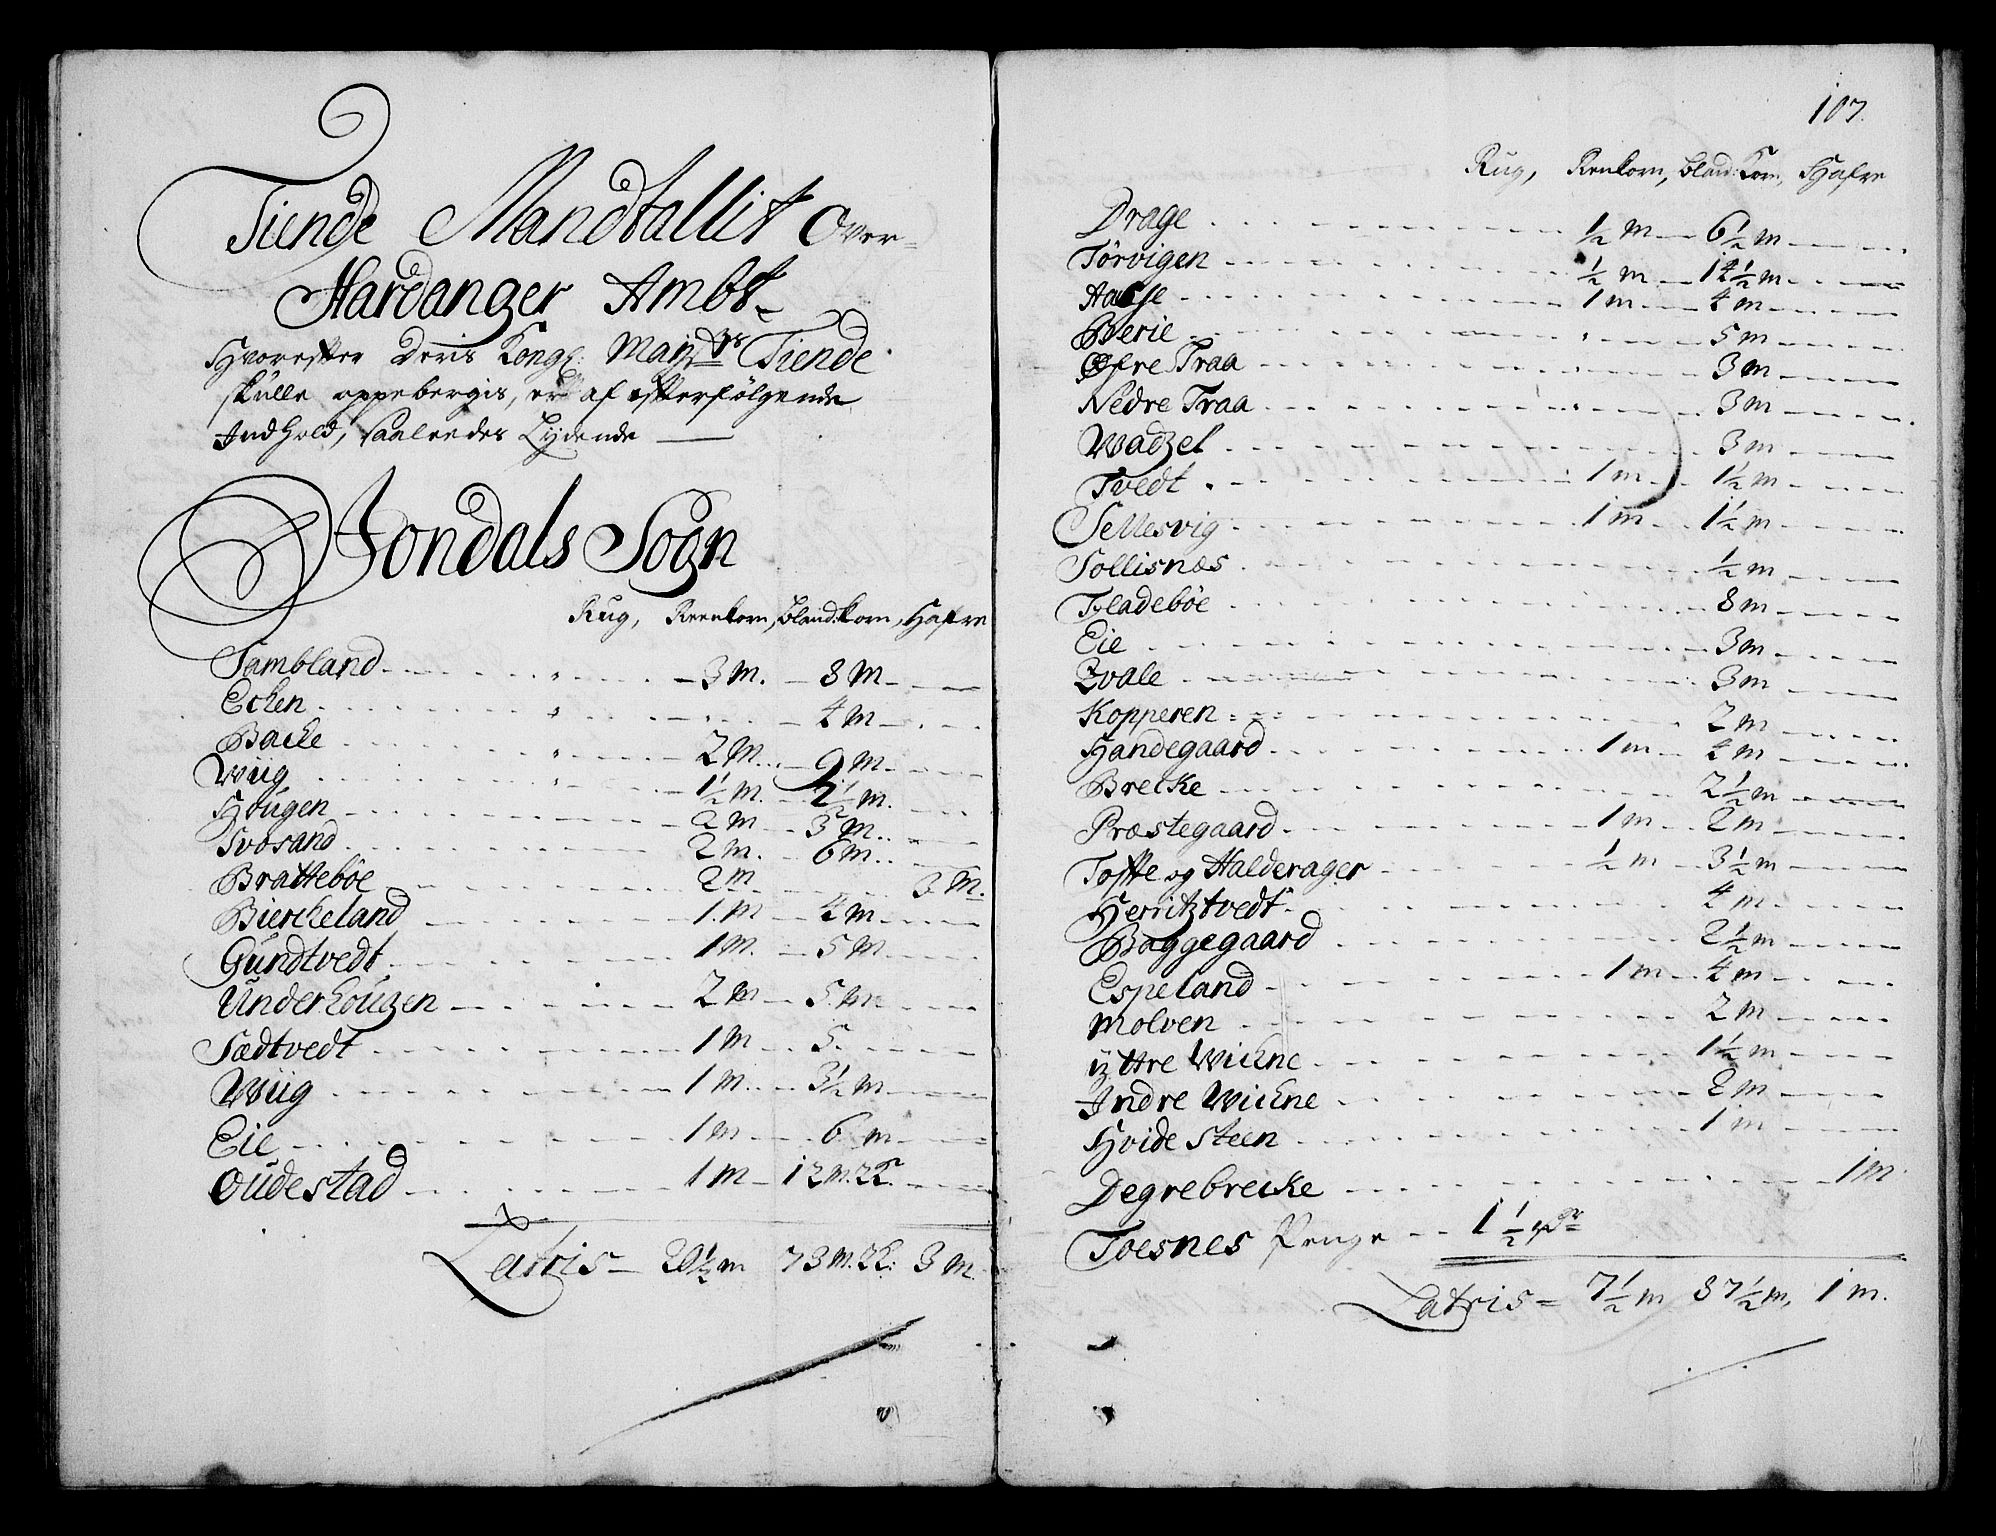 Tiende Mandtallit Over=
Hardanger Ambt
Hvorefter Deris Kongl: Mayts Tiende
skulle oppebergis, er af efterfølgende
Indhold, saaledes Lÿdende
Jondals Sogn
Rug, Reenkorn, Bland:korn, Hafre
Sambland 3 m. 8 m
Ecken 4 m
Backe 2 m. 9 m.
Wiig 1½ m. 2½ m.
Hougen 2 m 5 m.
Svosand 2 m. 6 m.
Brattebøe 2 m 3 m.
Bierckeland 1. m 4 m
Gundtvedt 1 m. 5 m
Underhougen 2 m 5 m
Sædtvedt 1 m 5.
Wiig 1 m. 3½ m
Eie 1 m 6 m
Oudestad 1 m 12 m. 2
Latris 20½ m 73 m. 2 3 m
107.
Rug, Renkorn, Bland:Korn, Hafre
Drage ½ m 6½ m
Tørvigen ½ m 14½ m
Aase 1 m 4 m
Berie 5 m
Øfre Traa 3 m
Nedre Traa 3 m
Wadzel 3 m
Tvedt 1 m 1½ m
Sellesvig 1 m 1½ m
Sollisnæs ½ m
Fladebøe 8 m
Eie 3 m
Qvale 3 m
Kopperen 2 m
Handegaard 1 m 4 m
Brecke 2½ m
Præstegaard 1 m 2 m
Tofte og Halderager ½ m 3½ m
Herritztvedt 4 m
Baggegaard 2½ m
Espeland 1 m 4 m
Molven 2 m
ÿttre Wichne 1½ m
Indre Wichne 2 m
Hvide Steen 1 m
Degrebrecke 1 m.
Toesnes Penge 1½
Latris 7½ m 87½ m, 1 m.